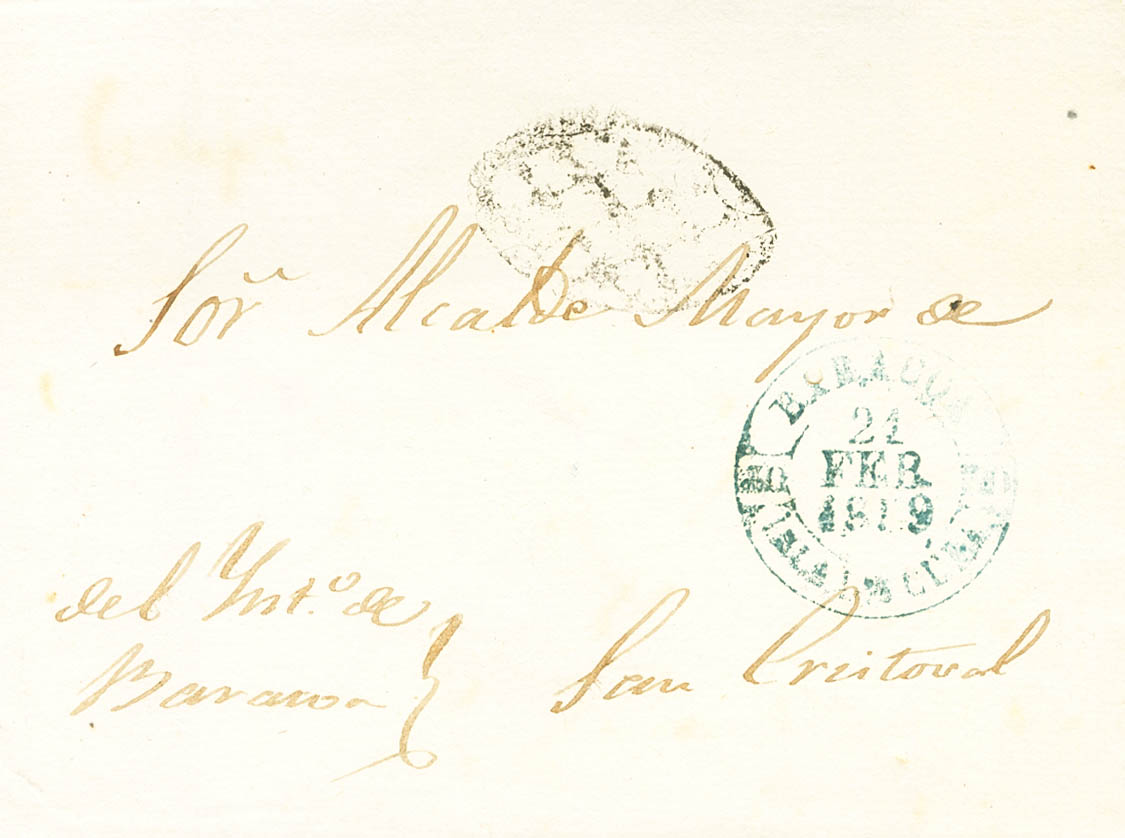 Sor Alcalde Mayor de
BARACOA
21
FEB
1859
ISLA DE CUBA
del Ynt.º de
Baracoa
San Cristoval